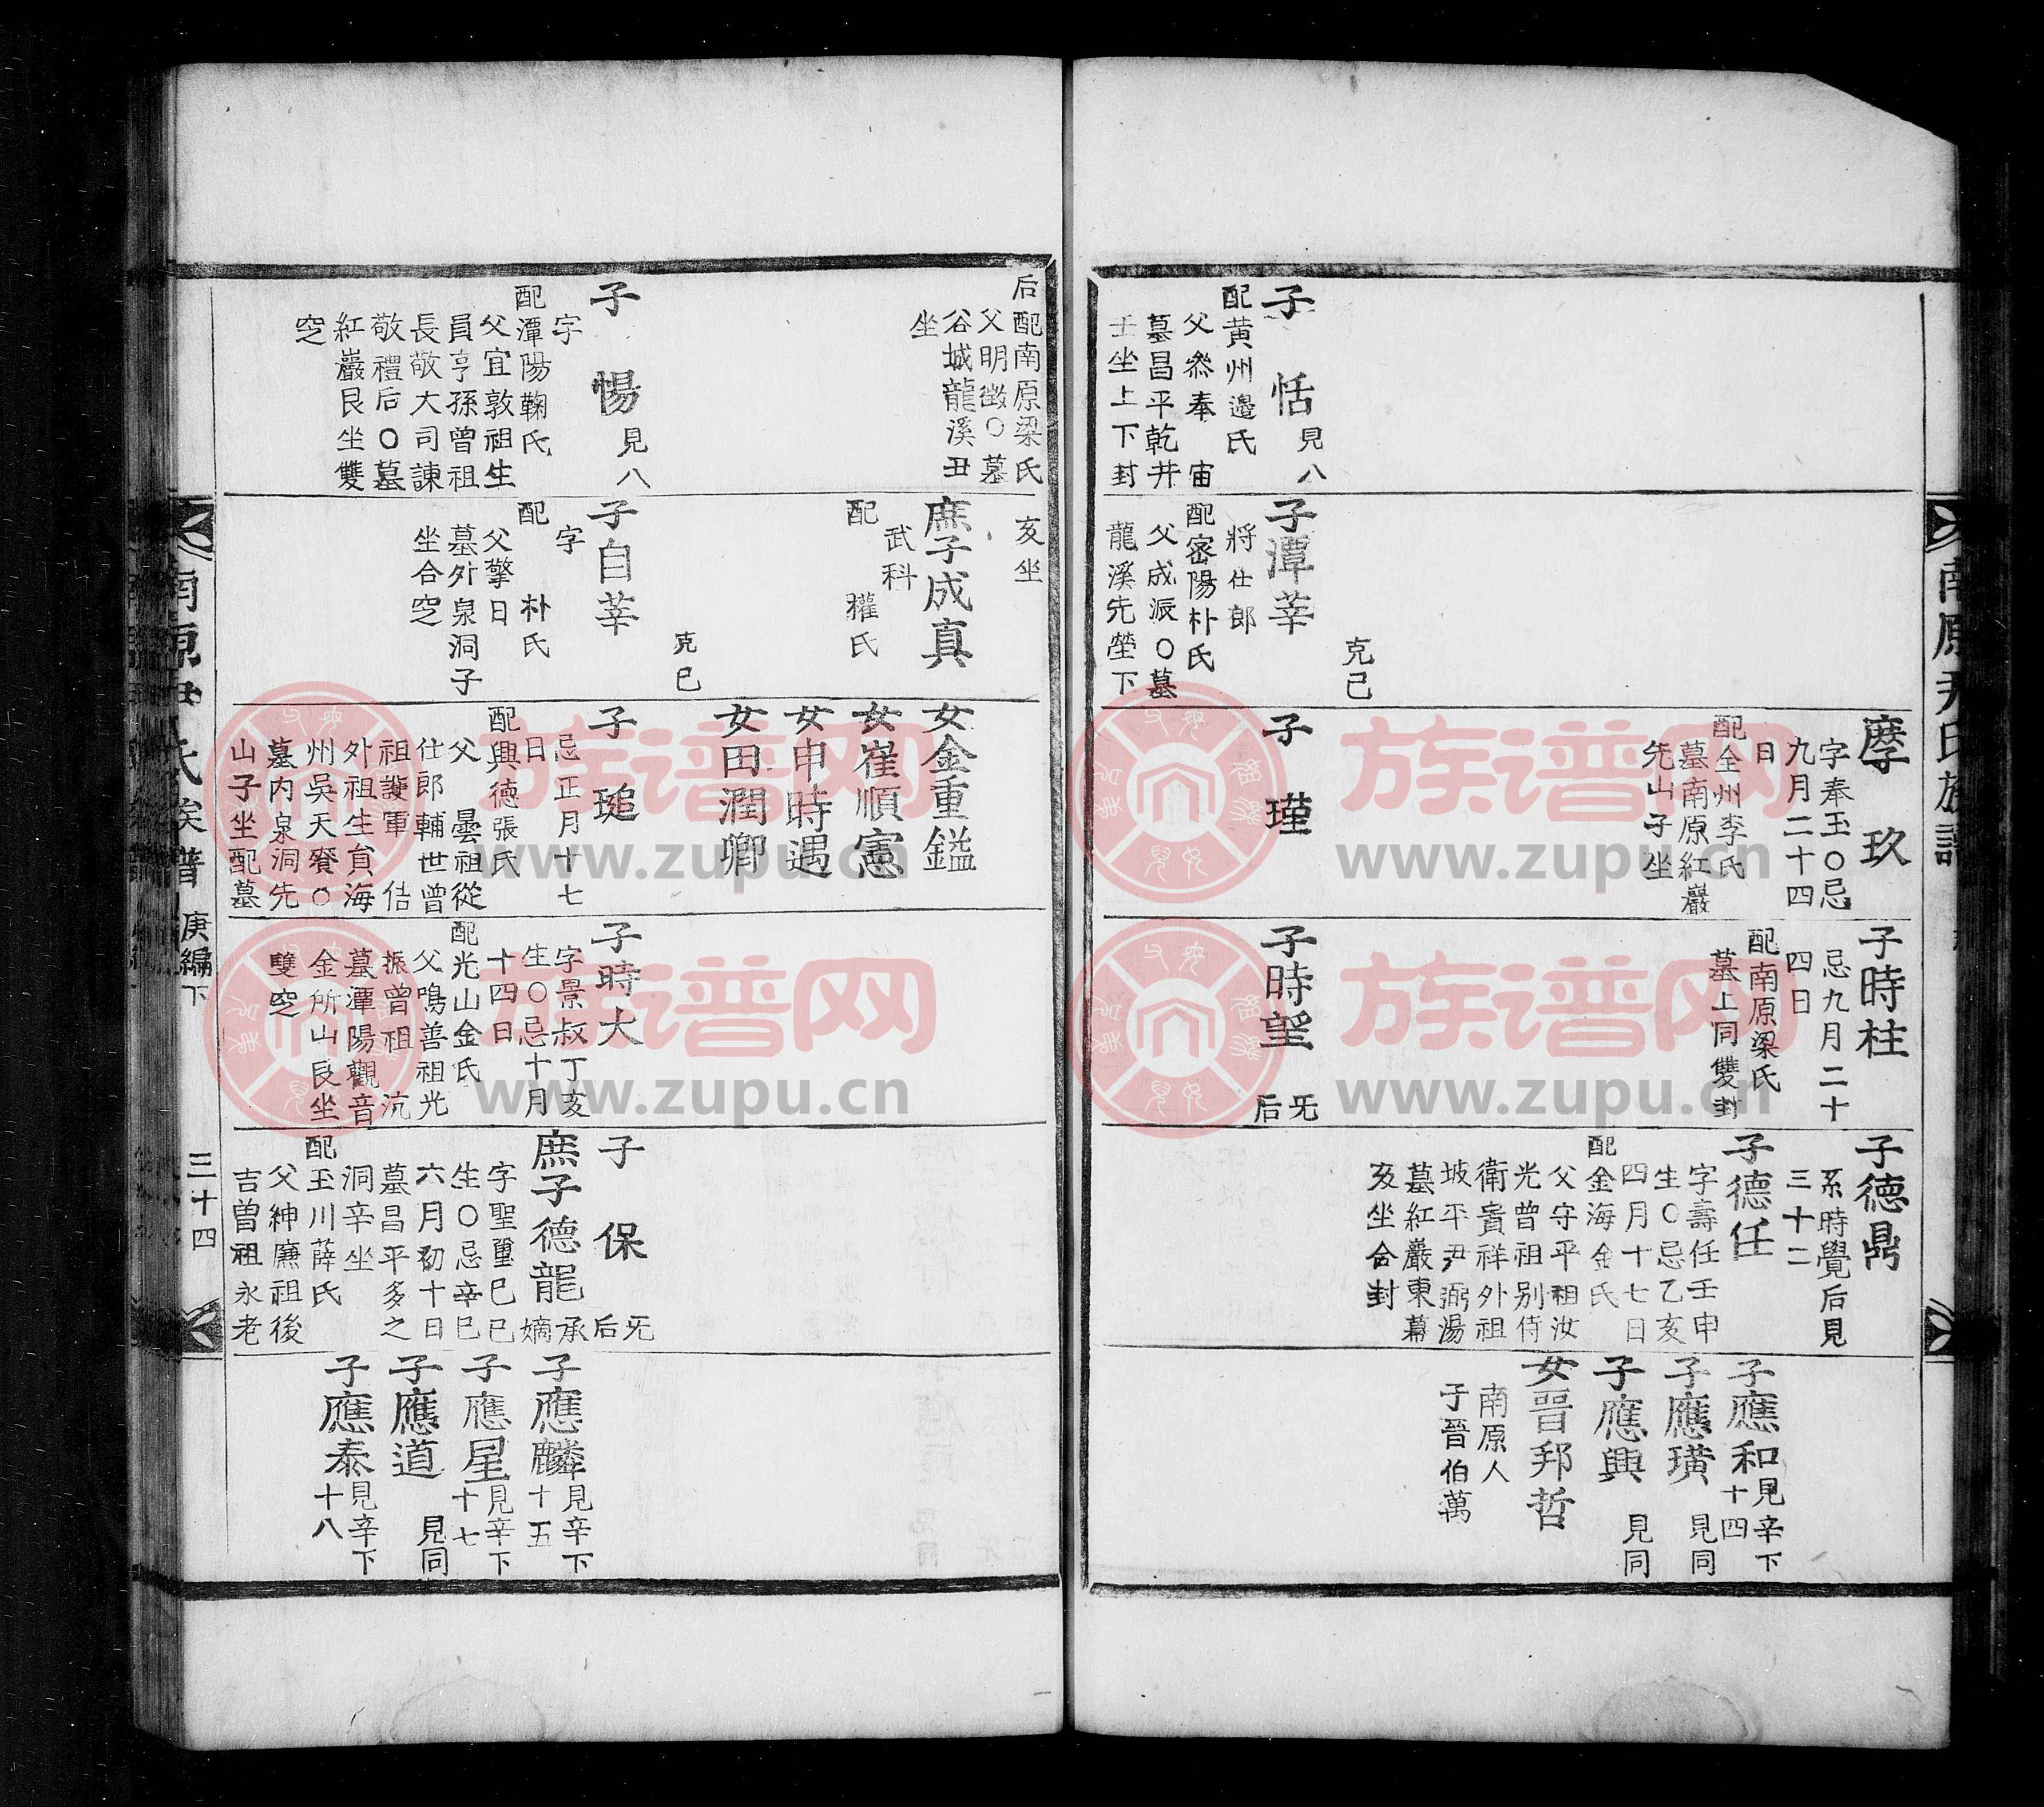 南原尹氏族譜
子 恬 見八
配黄州邊氏
父叅奉 宙
墓昌平乾井
壬坐上下封
克己
子潭莘
將仕郎
配密陽朴氏
父成派〇墓
龍溪先塋下
摩 玖
字奉玉〇忌
九月二十四
日
配全州李氏
墓南原紅巖
先山子坐
子 瑾
子時柱
忌九月二十
四日
配南原梁氏
墓上同雙封
子時望 旡后
子德鼎
系時覺后見
三十二
子德任
字壽任壬申
生〇忌乙亥
四月十七日
配金海金氏
父守平祖汝
光曾祖别侍
衛貴祥外祖
坡平尹弼湯
墓紅巖東幕
亥坐合封
子應和 見辛下十四
子應璜 見同
子應興 見同
女晋邦哲
南原人
子晋伯萬
后配南原梁氏
父明徵〇墓
谷城龍溪丑
坐
子 惕 見八
字
配潭陽鞠氏
父宜敦祖生
員亨孫曾祖
長敬大司諫
敬禮后〇墓
紅巖艮坐雙
窆
亥坐
庶子成真
武科
配 權氏
克己
子自莘
字
配 朴氏
父擎日
墓外泉洞子
坐合窆
女金重鎰
女崔順憲
女申時遇
女田潤卿
子 瑄
忌正月十七
日
配興德張氏
父 曇祖從
仕郎輔世曾
祖護軍 佶
外祖生員海
州吳天賚〇
墓内泉洞先
山子坐配墓
子時大
字景叔丁亥
生〇忌十月
十四日
配光山金氏
父鳴善祖光
振曾祖 沆
墓潭陽觀音
金所山艮坐
雙窆
子 保 旡后
庶子德龍 承嫡
字聖璽己巳
生〇忌辛巳
六月初十日
墓昌平多之
洞辛坐
配玉川薛氏
父紳廉祖後
吉曽祖永老
子應麟 見辛下十五
子應星 見辛下十七
子應道 見同
子應泰 見辛下十八
南原尹氏族譜 庚編下 三十四
族谱网
www.zupu.cn
族谱网
www.zupu.cn
族谱网
www.zupu.cn
族谱网
www.zupu.cn